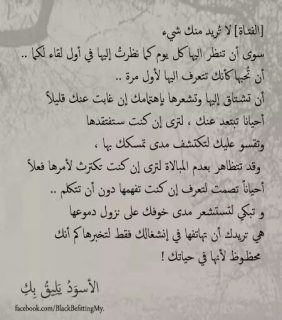 [الفتاة] لا تُريد منك شيء
سوى أن تنظر اليها كل يوم كما نظرتُ إليها في أول لقاء لكما ..
أن تُحبها كأنك تتعرف اليها لأول مرة ..
أن تشتاق إليها وتشعرها بإهتمامك إن غابت عنك قليلاً
أحياناً تبتعد عنك ، لترى إن كنت ستفتقدها
وتقسو عليك ، لتكتشف مدى تمسكك بها ،
وقد تتظاهر بعدم المبالاة لترى إن كنت تكترث لأمرها فعلاً
أحياناً تصمت لتعرف إن كنت تفهمها دون أن تتكلم ..
و تبكي لتستشعر مدى خوفك على نزول دموعها
هي تريدك أن تهاتفها في إنشغالك فقط لتخبرها كم أنك
محظوظ لأنها في حياتك !
الأسوَدُ يَلِيقُ بِكِ
facebook.com/BlackBefittingMy.